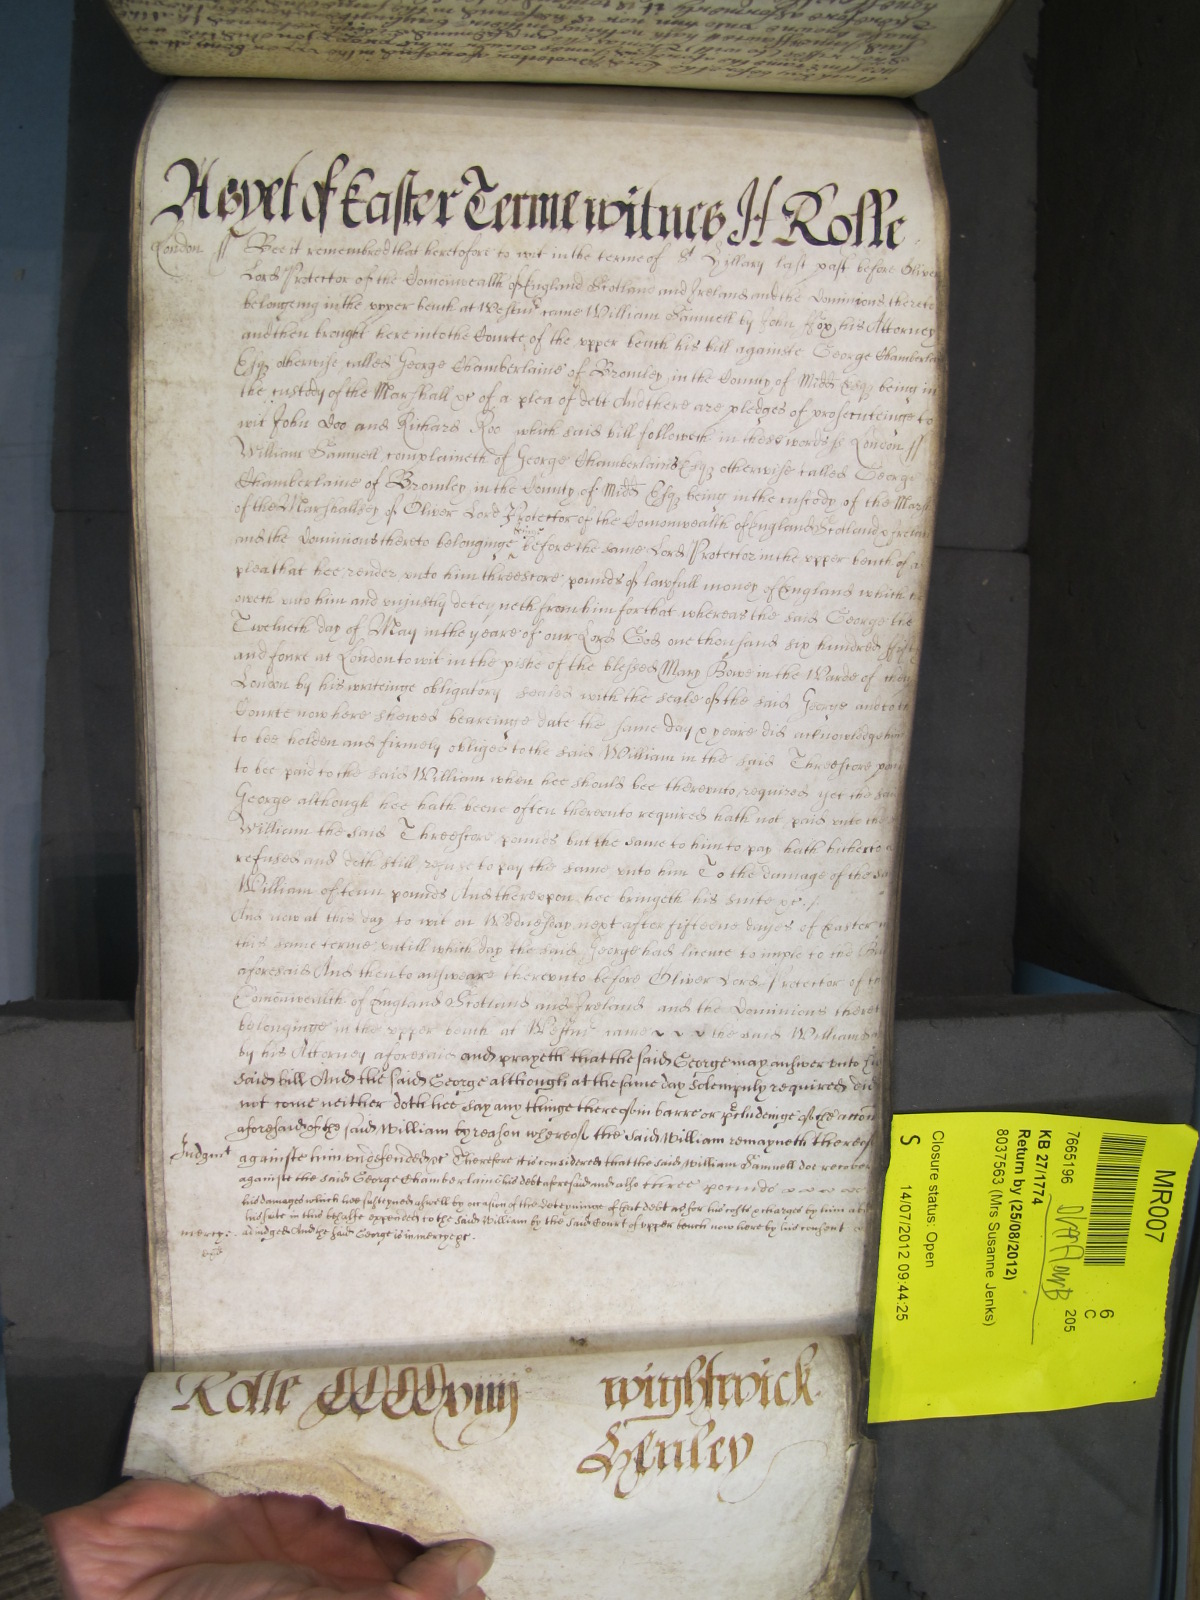 As yet of Easter Terme witnes H Rolle
London ss Bee it remembred that heretofore to wit in the terme of St Hillary last past before Oliver
Lord Protector of the Comonwealth of England Scotland and Ireland and the Dominions thereto
belongeing in the upper bench at Westmr came William Samwell by John Fox his Attorney
and then brought here into the Courte of the upper bench his bill againste George Chamberlai
Esqr otherwise called George Chamberlaine of Bromley in the County of Midd Esqr being in
the custody of the Marshall &c of a plea of debt And there are pledges of prosecuteinge to
wit John Doo and Richard Roo which said bill followeth in these words ss London ss
William Samwell complaineth of George Chamberlaine Esqr otherwise called George
Chamberlaine of Bromley in the County of Midd Esqr being in the custody of the Mars
of the Marshallsey of Oliver Lord Protector of the Comonwealth of England Scotland & Irelan
and the Dominions thereto belonginge before the same Lord Protector in the upper bench of a
plea that hee render unto him threescore pounds of lawfull money of England which
oweth unto him and unjustly deteyneth from him for that whereas the said George the
Twelueth day of May in the yeare of our Lord God one thousand six hundred fifty
and foure at London to wit in the pishe of the blessed Mary Bowe in the Warde of
London by his writeinge obligatory sealed with the seale of the said George and to
Courte now here shewed beareinge date the same day & yeare did acknowledge him
to bee holden and firmely obliged to the said William in the said Threescore poun
to bee paid to the said William when hee should bee thereunto required yet the sai
George although hee hath beene often thereunto required hath not paid unto the
William the said Threescore pounds but the same to him to pay hath hitherto
refused and doth still refuse to pay the same unto him To the damage of the sa
William of tenn pounds And thereupon hee bringeth his suite &c
And now at this day to wit on Wednesday next after fifteene dayes of Easter
this same terme untill which day the said George had licence to imple to the bill
aforesaid And then to answeare thereunto before Oliver Lord Protector of the
Comonwealth of England Scotland and Ireland and the Dominions theret
belonginge in the upper bench at Westmr came the said William
by his Attorney aforesaid and prayeth that the said George may answer unto
said bill And the said George although at the same day solempnly required did
not come neither doth hee say any thinge thereof in barre or pcludeinge of the accon
aforesaid of the said William by reason whereof the said William remayneth thereof
Judgmt againste him undefended &c Therefore it is considered that the said William Samwell doe recover
againste the said George Chamberlaine his debt aforesaid and also three pounds
his damages which hee susteyned aswell by occasion of the deteyninge of that debt as for his costs & charges by him
his suite in this behalfe expended to the said William by the said Court of upper bench now here by his consent
mercy adiudged And the said George is in mercy &c
Rolle CCCCviiij
wightwick
Henley
MR007
6
C
205
7665196
KB 27/1774
Return by (25/08/2012)
8037563 (Mrs Susanne Jenks)
Closure status: Open
S 14/07/2012 09:44:25